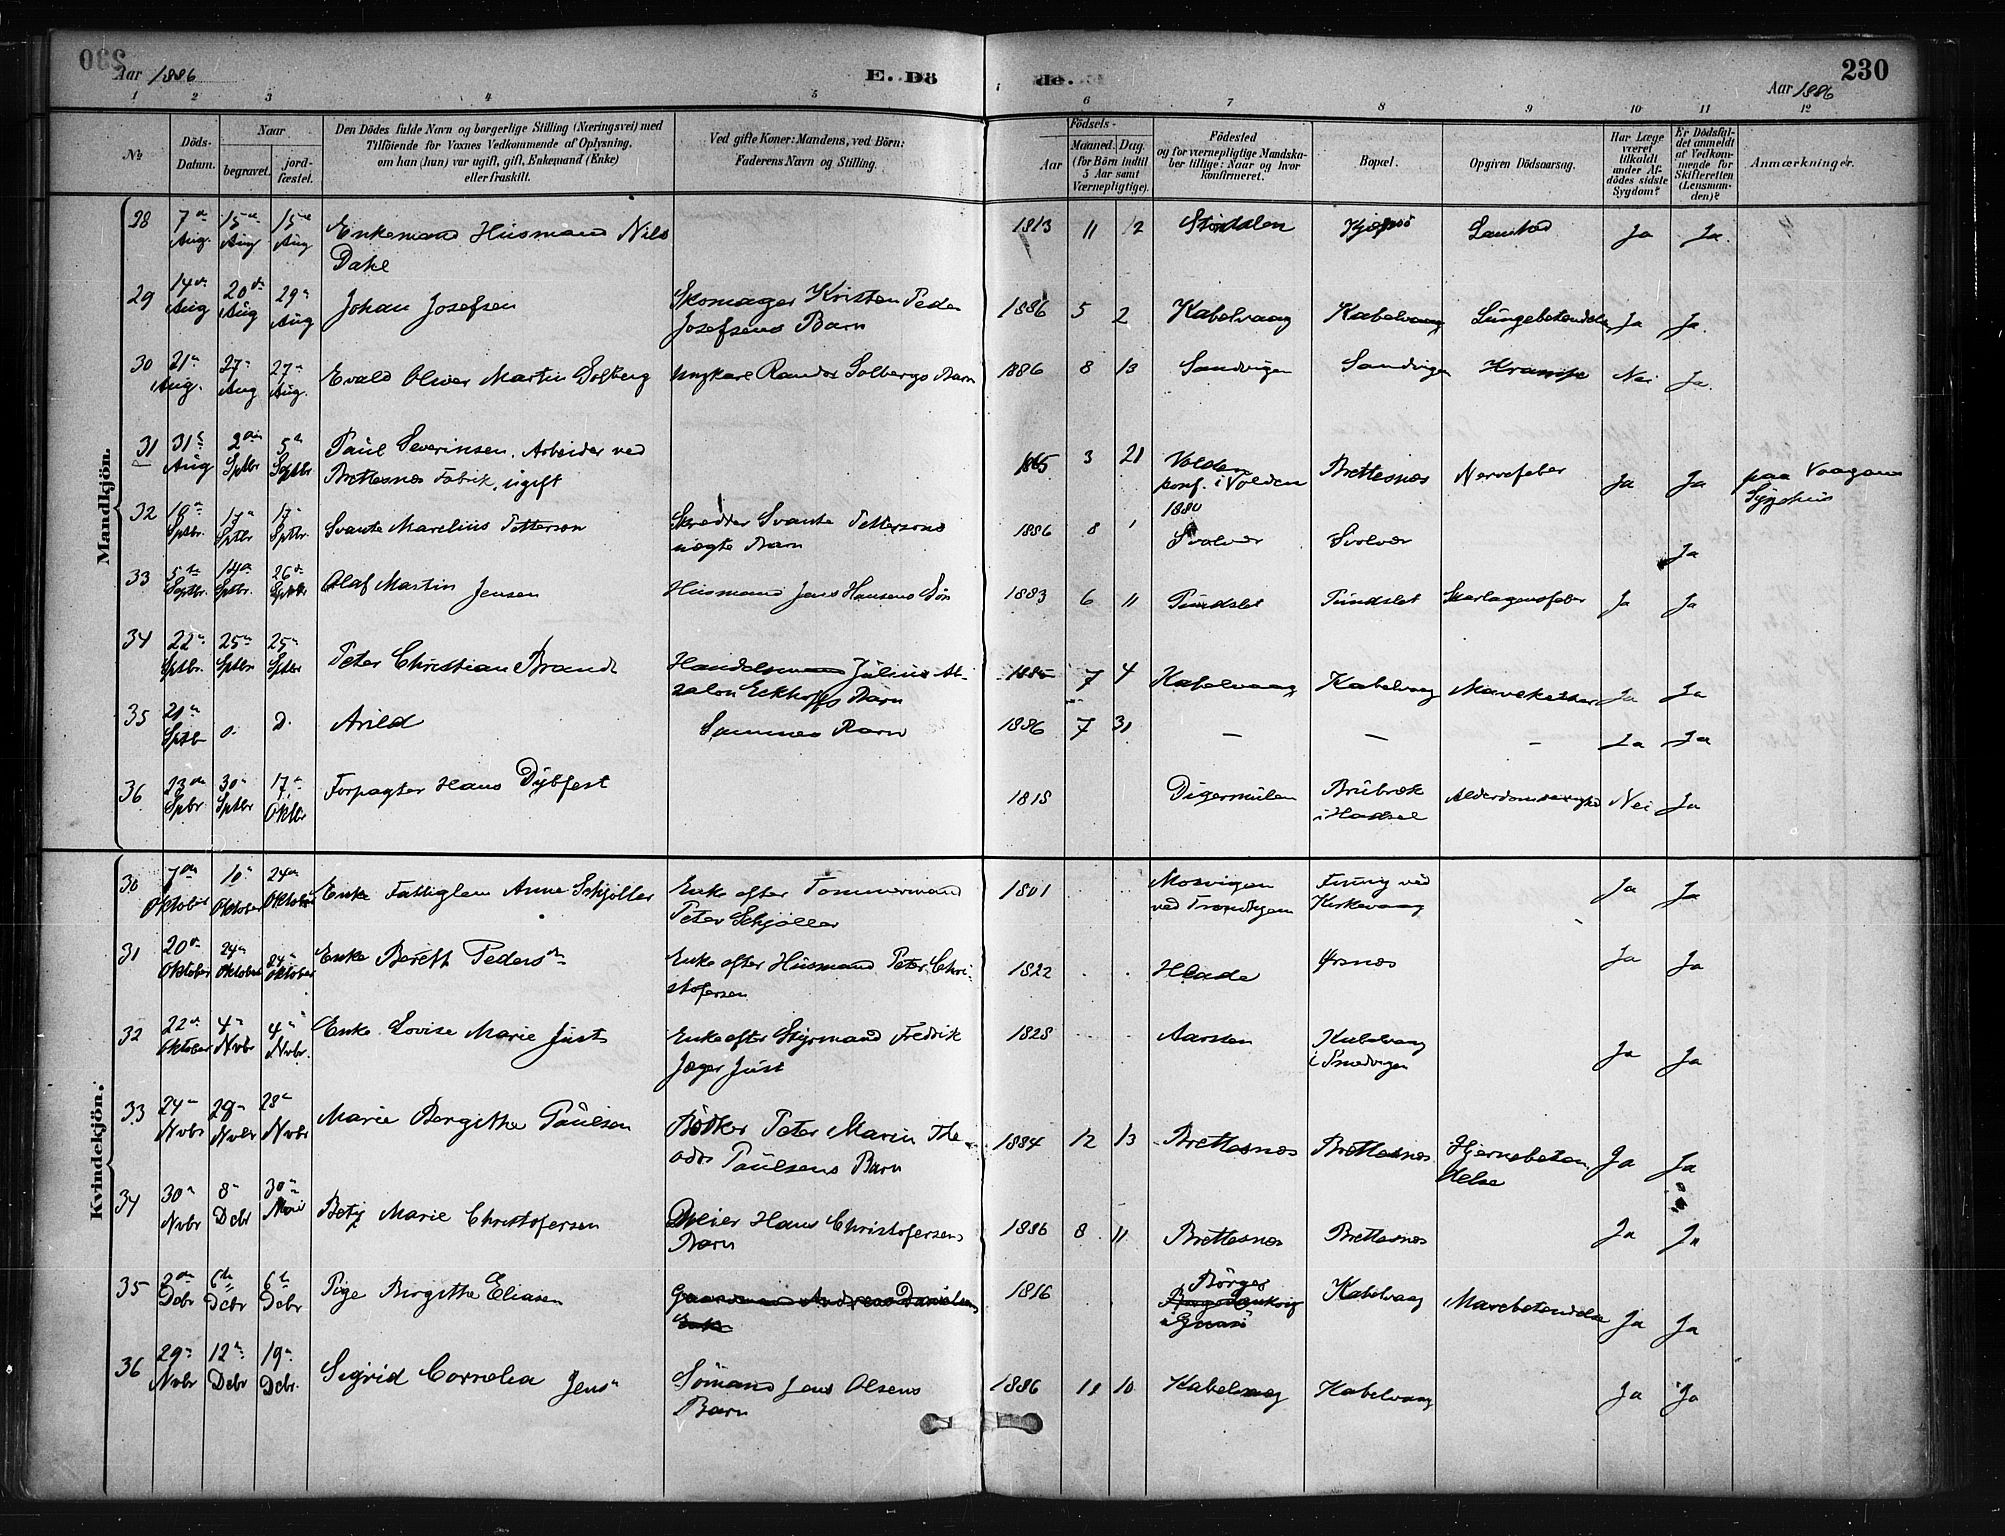 Aar 1886
E. Dö
de.
230
Aar 1886
1 2 3 4 5 6 7 8 9 10 11 12
№
Döds-Datum.
Naar
begravet.
jord-fæstet.
Den Dödes fulde Navn og borgerlige Stilling (Næringsvei) med
Tilföiende for Voxnes Vedkommende af Oplysning,
om han (hun) var ugift, gift, Enkemand (Enke)
eller fraskilt.
Ved gifte Koner: Mandens, ved Börn:
Faderens Navn og Stilling.
Födsels-
Aar
Maaned. Dag.
(for Börn indtil
5 Aar samt
Værnepligtige).
Födested
og for værnepligtige Mandska-
ber tillige: Naar og hvor
konfirmeret.
Bopæl.
Opgiven Dödsaarsag.
Har Læge
været
tilkaldt
under Af-
dödes sidste
Sygdom?
Er Dödsfal-
det anmeldt
af Vedkom-
mende for
Skifteretten
(Lensman-
den)?
Anmærkninger.
Mandkjön.
28 7de Aug. 15de Aug 15de Aug Enkemand Husmand Nils 1813 11 12 Ja Ja
Dahl
29 14de Aug 20de Aug 29de Aug Johan Josefsen Skomager Kristen Peder 1886 5 2 Kabelvaag Kabelvaag Lungebetendelse Ja Ja
Josefsens Barn
30 21de Aug. 27de Aug 27de Aug. Evald Oliver Martin Solberg Ungkarl Randor Solbergs Barn 1886 8 13 Sandvigen Sandvigen Krampe Nei Ja
31 31te Aug 2den Sptbr 5te Septbr Paul Severinsen, Arbeider ved 1865 3 21 Volden Brettesnes Nervefeber Ja Ja paa Vaagans
Brettesnes Fabrik, ugift konf. i Volden Sygehus
1880
32 Sptbr. 17de Sptbr 17de Sptbr. Svante Marelius Petterson Skredder Svante Pettersons 1886 8 1 Svolvær Svolvær Ja
uægte Barn
33 5te Septbr. Sptbr. 26de Olaf Martin Jensen Husmand Jens Hansens Sön 1883 6 11 Pundslet Pundslet Skarlagensfeber Ja Ja
34 22de Sptbr. 25de Sptbr 25de Sptbr Peter Christian Brandt Handelsmand Julius Ab- 7 4 Kabelvaag Kabelvaag Ja Ja
salon Eckhoffs Barn
35 21de Sptb D. D. Arild Sammes Barn 1886 7 31 — — — Ja Ja
36 23de Spbr 30de Sptbr 17de Oktbr Forpagter Hans Dybfest 1815 Digermulen i Hadsel Nei Ja
Kvindekjön.
30 7de Oktober Oktober 24de Oktober Enke Fattiglem Anne Schjöller Enke efter Tömmermand 1801 Mosvigen ved Kirkevaag Ja Ja
Peter Schjöller ved Trondhjem
31 20de Oktober 24de Oktober 24de Oktober Enke Berett Pedersdn Enke efter Husmand Peter Chri- 1822 Hlade Ørsnes Ja Ja
stofersen
32 22de Oktober 4de Nvbr 4de Nvbr. Enke Lovise Marie Just Enke efter Styrmand Fredrik 1828 Kabelvaag Ja Ja
Jæger Just
33 24de Nvbr 28de Nvbr 28de Nvbr Marie Bergithe Paulsen Bödker Peter Marin The- 1884 12 13 Brettesnes Brettesnes Hjernebeten Ja Ja
odor Paulsens Barn delse
34 30de Nvbr 8de Dcbr 30de Mai Bety Marie Christofersen Hans Christofersens 1886 8 11 Brettesnes Brettesnes Ja Ja
Barn
35 2den Dcbr 6te Dcbr 6te Dcbr Pige Birgithe Eliasen Gaardmand Andreas Danielsens 1816 Börger Kabelvaag Mavebetendelse Ja Ja
Enke
36 29de Nvbr 12te Dcbr 19de Dcbr. Sigrid Cornelia Jensn Sömand Jens Olsens 1886 11 10 Kabelvaag Kabelvaag Ja Ja
Barn